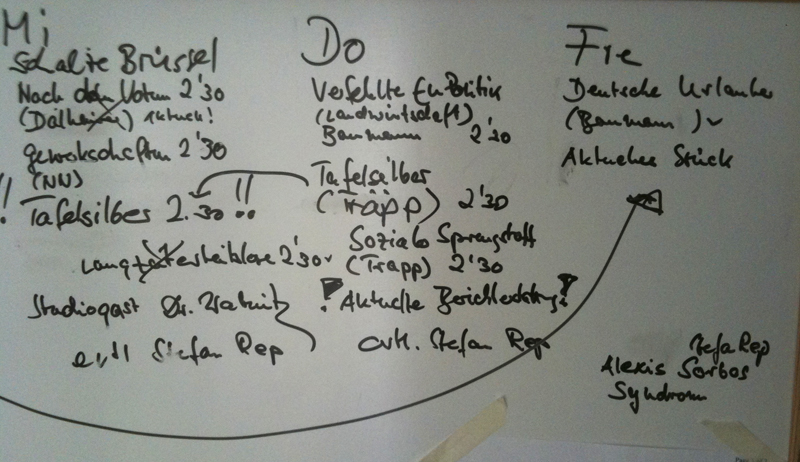 Mi
Schalte Brüssel
Nach dem Votum 2'30
(Dalheimer) Aktuell!
Gewerkschaften 2'30
(NN)
!! Tafelsilber 2.30 !!
2'30
Studiogast Dr.
evtl Stefan Rep
Do
Verfehlte EU Politik
(Landwirtschaft)
Baumann 2'20
Tafelsilber
(Träpp) 2'30
Soziale Sprengstoff
(Trapp) 2'30
! Aktuelle Berichterstattg!
evtl. Stefan Rep
Fre
Deutsche Urlauber
(Baumann)
Aktuelles Stück
Stefa Rep
Alexis Sorbas
Syndrom